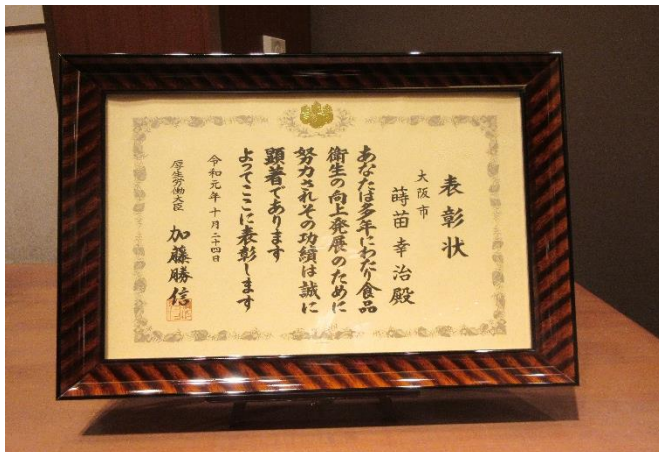 表彰状
大阪市
蒔苗幸治殿
あなたは多年にわたり食品
衛生の向上発展のために
努力されその功績は誠に
顕著であります
よってここに表彰します
令和元年十月二十四日
厚生労働大臣
加藤勝信